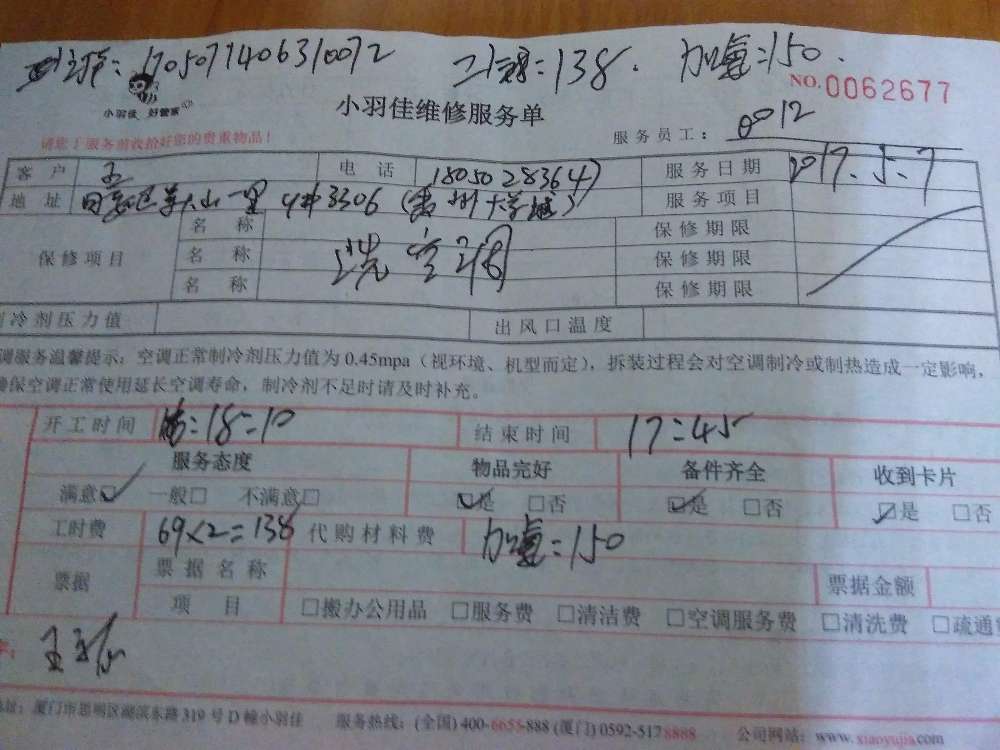 1705071406310072 =138. 加氟=150.
NO.0062677
小羽佳 好管家
小羽佳维修服务单
请您于服务前收拾好您的贵重物品！
服务员工： 0012
客 户 王 电 话 18050283647 服务日期 2017.5.7
地 址 一里 4#3306 服务项目
保修项目 名 称 保修期限
名 称 洗空调 保修期限
名 称 保修期限
制冷剂压力值 出风口温度
调服务温馨提示：空调正常制冷剂压力值为0.45mpa（视环境、机型而定），拆装过程会对空调制冷或制热造成一定影响，
确保空调正常使用延长空调寿命，制冷剂不足时请及时补充。
开工时间 18=10 结束时间 17=45
服务态度 物品完好 备件齐全 收到卡片
满意☑ 一般□ 不满意□ ☑是 □否 ☑是 □否 ☑是 □否
工时费 69×2=138 代购材料费 加氟=150
票据 票据名称 票据金额
项 目 □搬办公用品 □服务费 □清洁费 □空调服务费 □清洗费 □疏通
王
地址：厦门市思明区湖滨东路319号D幢小羽佳 服务热线：(全国)400-6655-888 (厦门)0592-5178888 公司网站：www.xiaoyujia.com